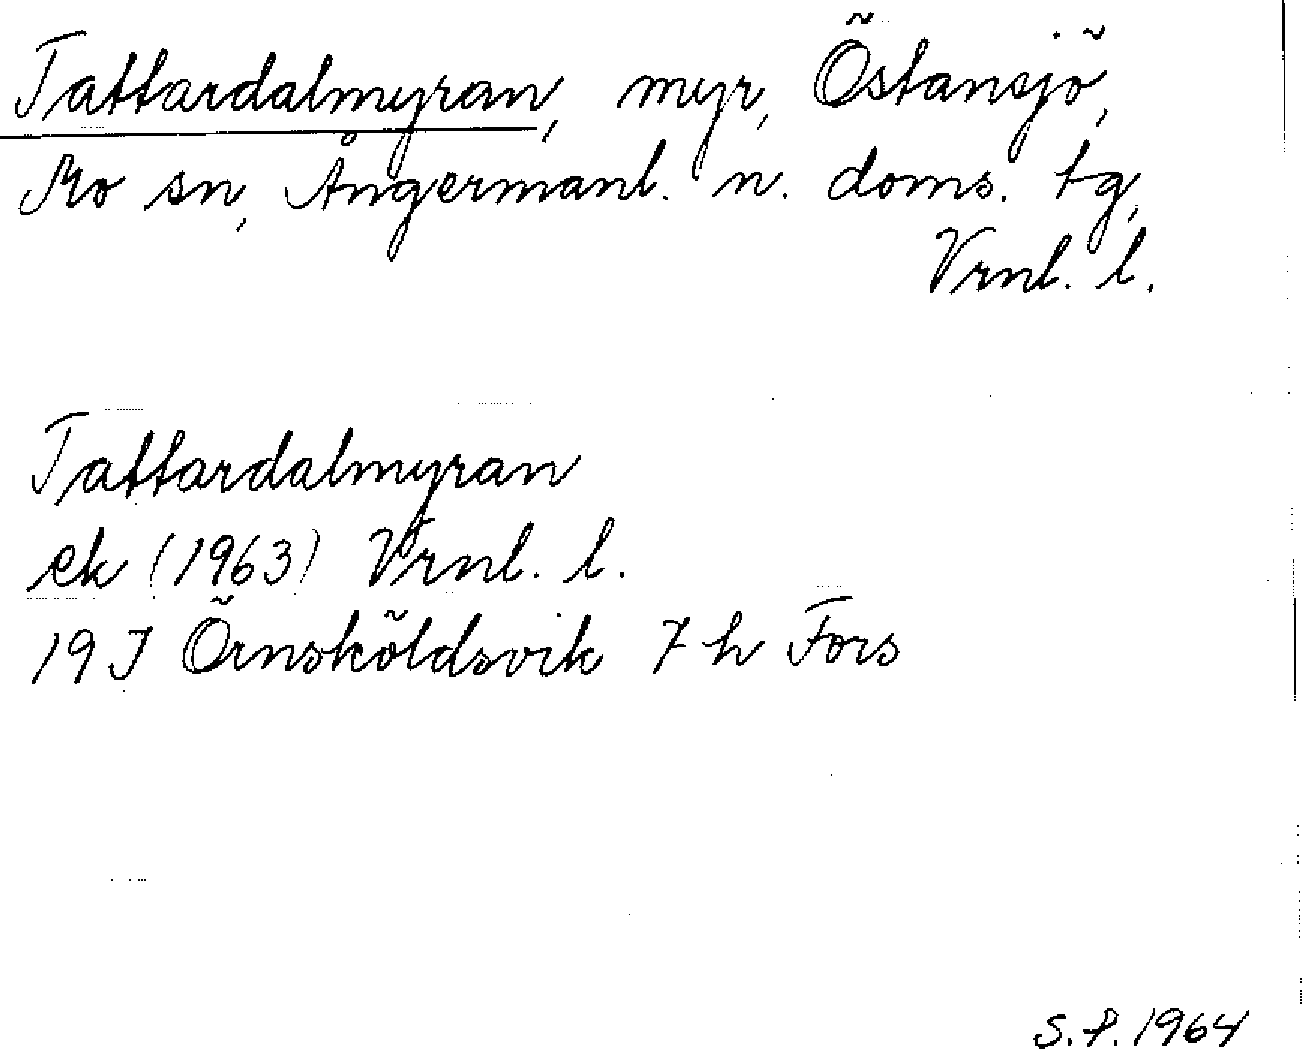 Tattardalmyran, myr, Östansjö,
Mo sn, Ångermanl. n. doms. tg,
Vrnl. l.
Tattardalmyran
ek (1963) Vrnl. l.
19 J Örnsköldsvik 7 h Fors
S.P. 1964